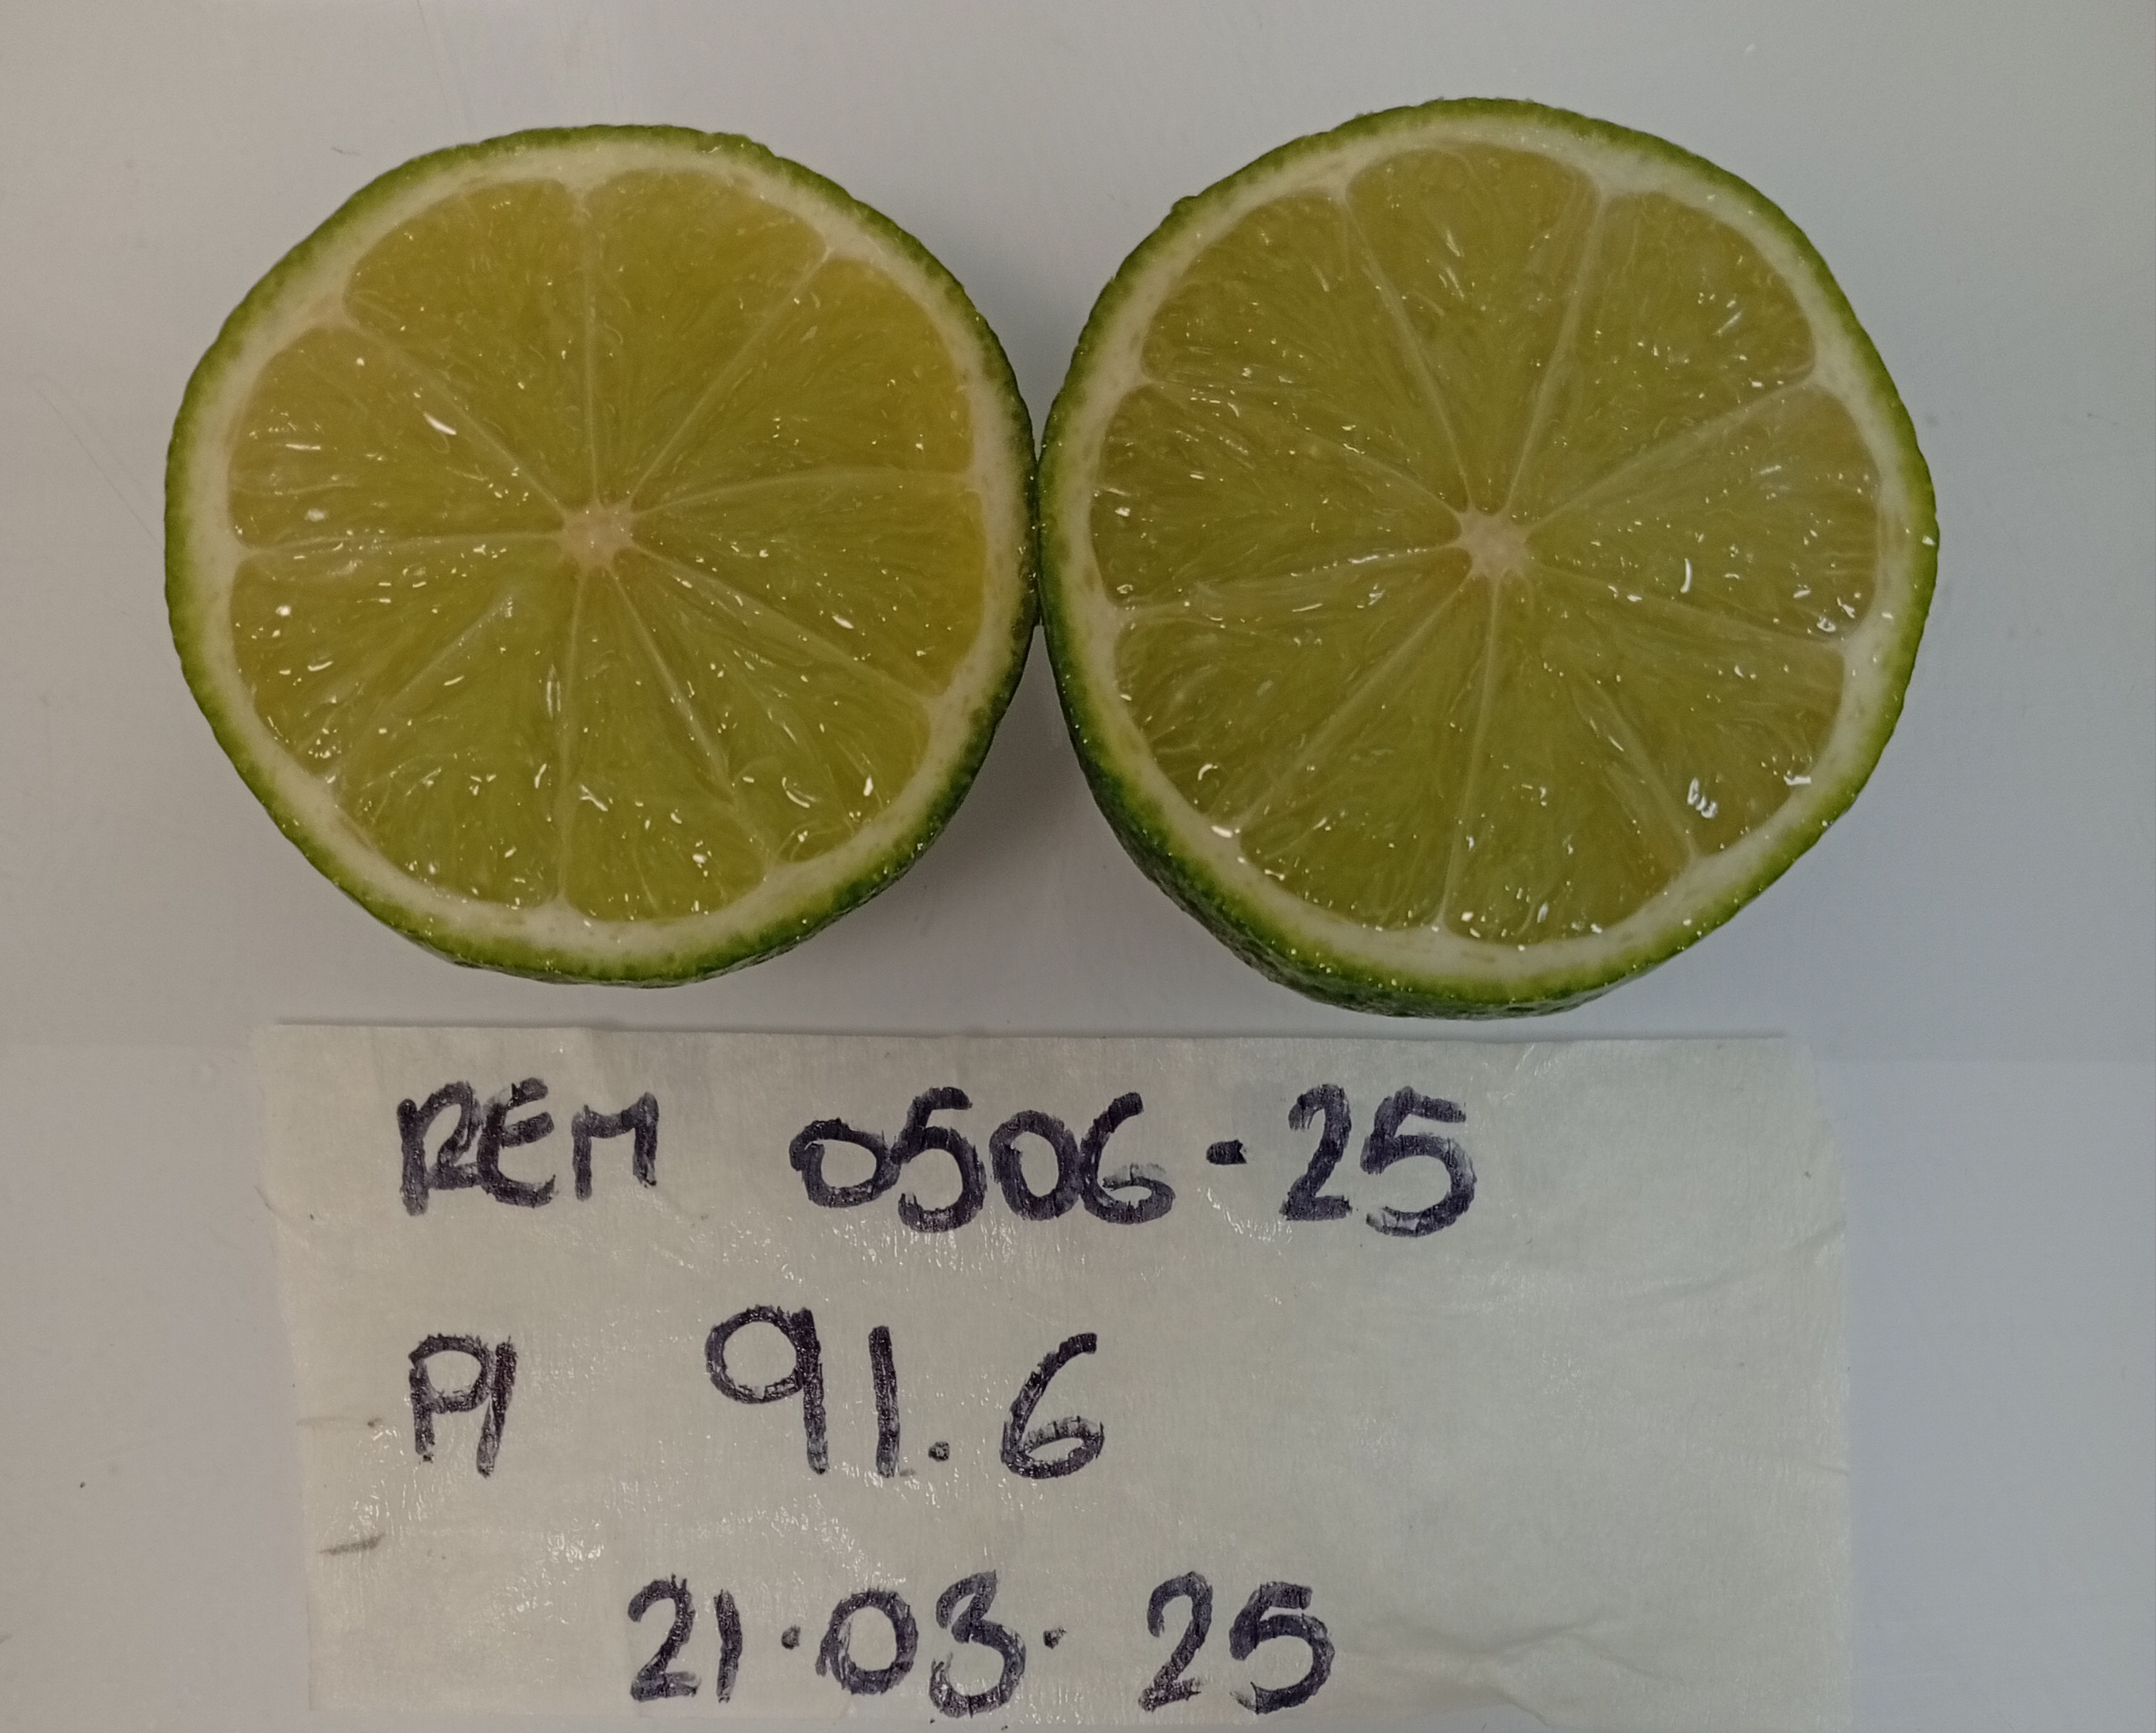 REM 0506-25
PI 91.6
21.03.25